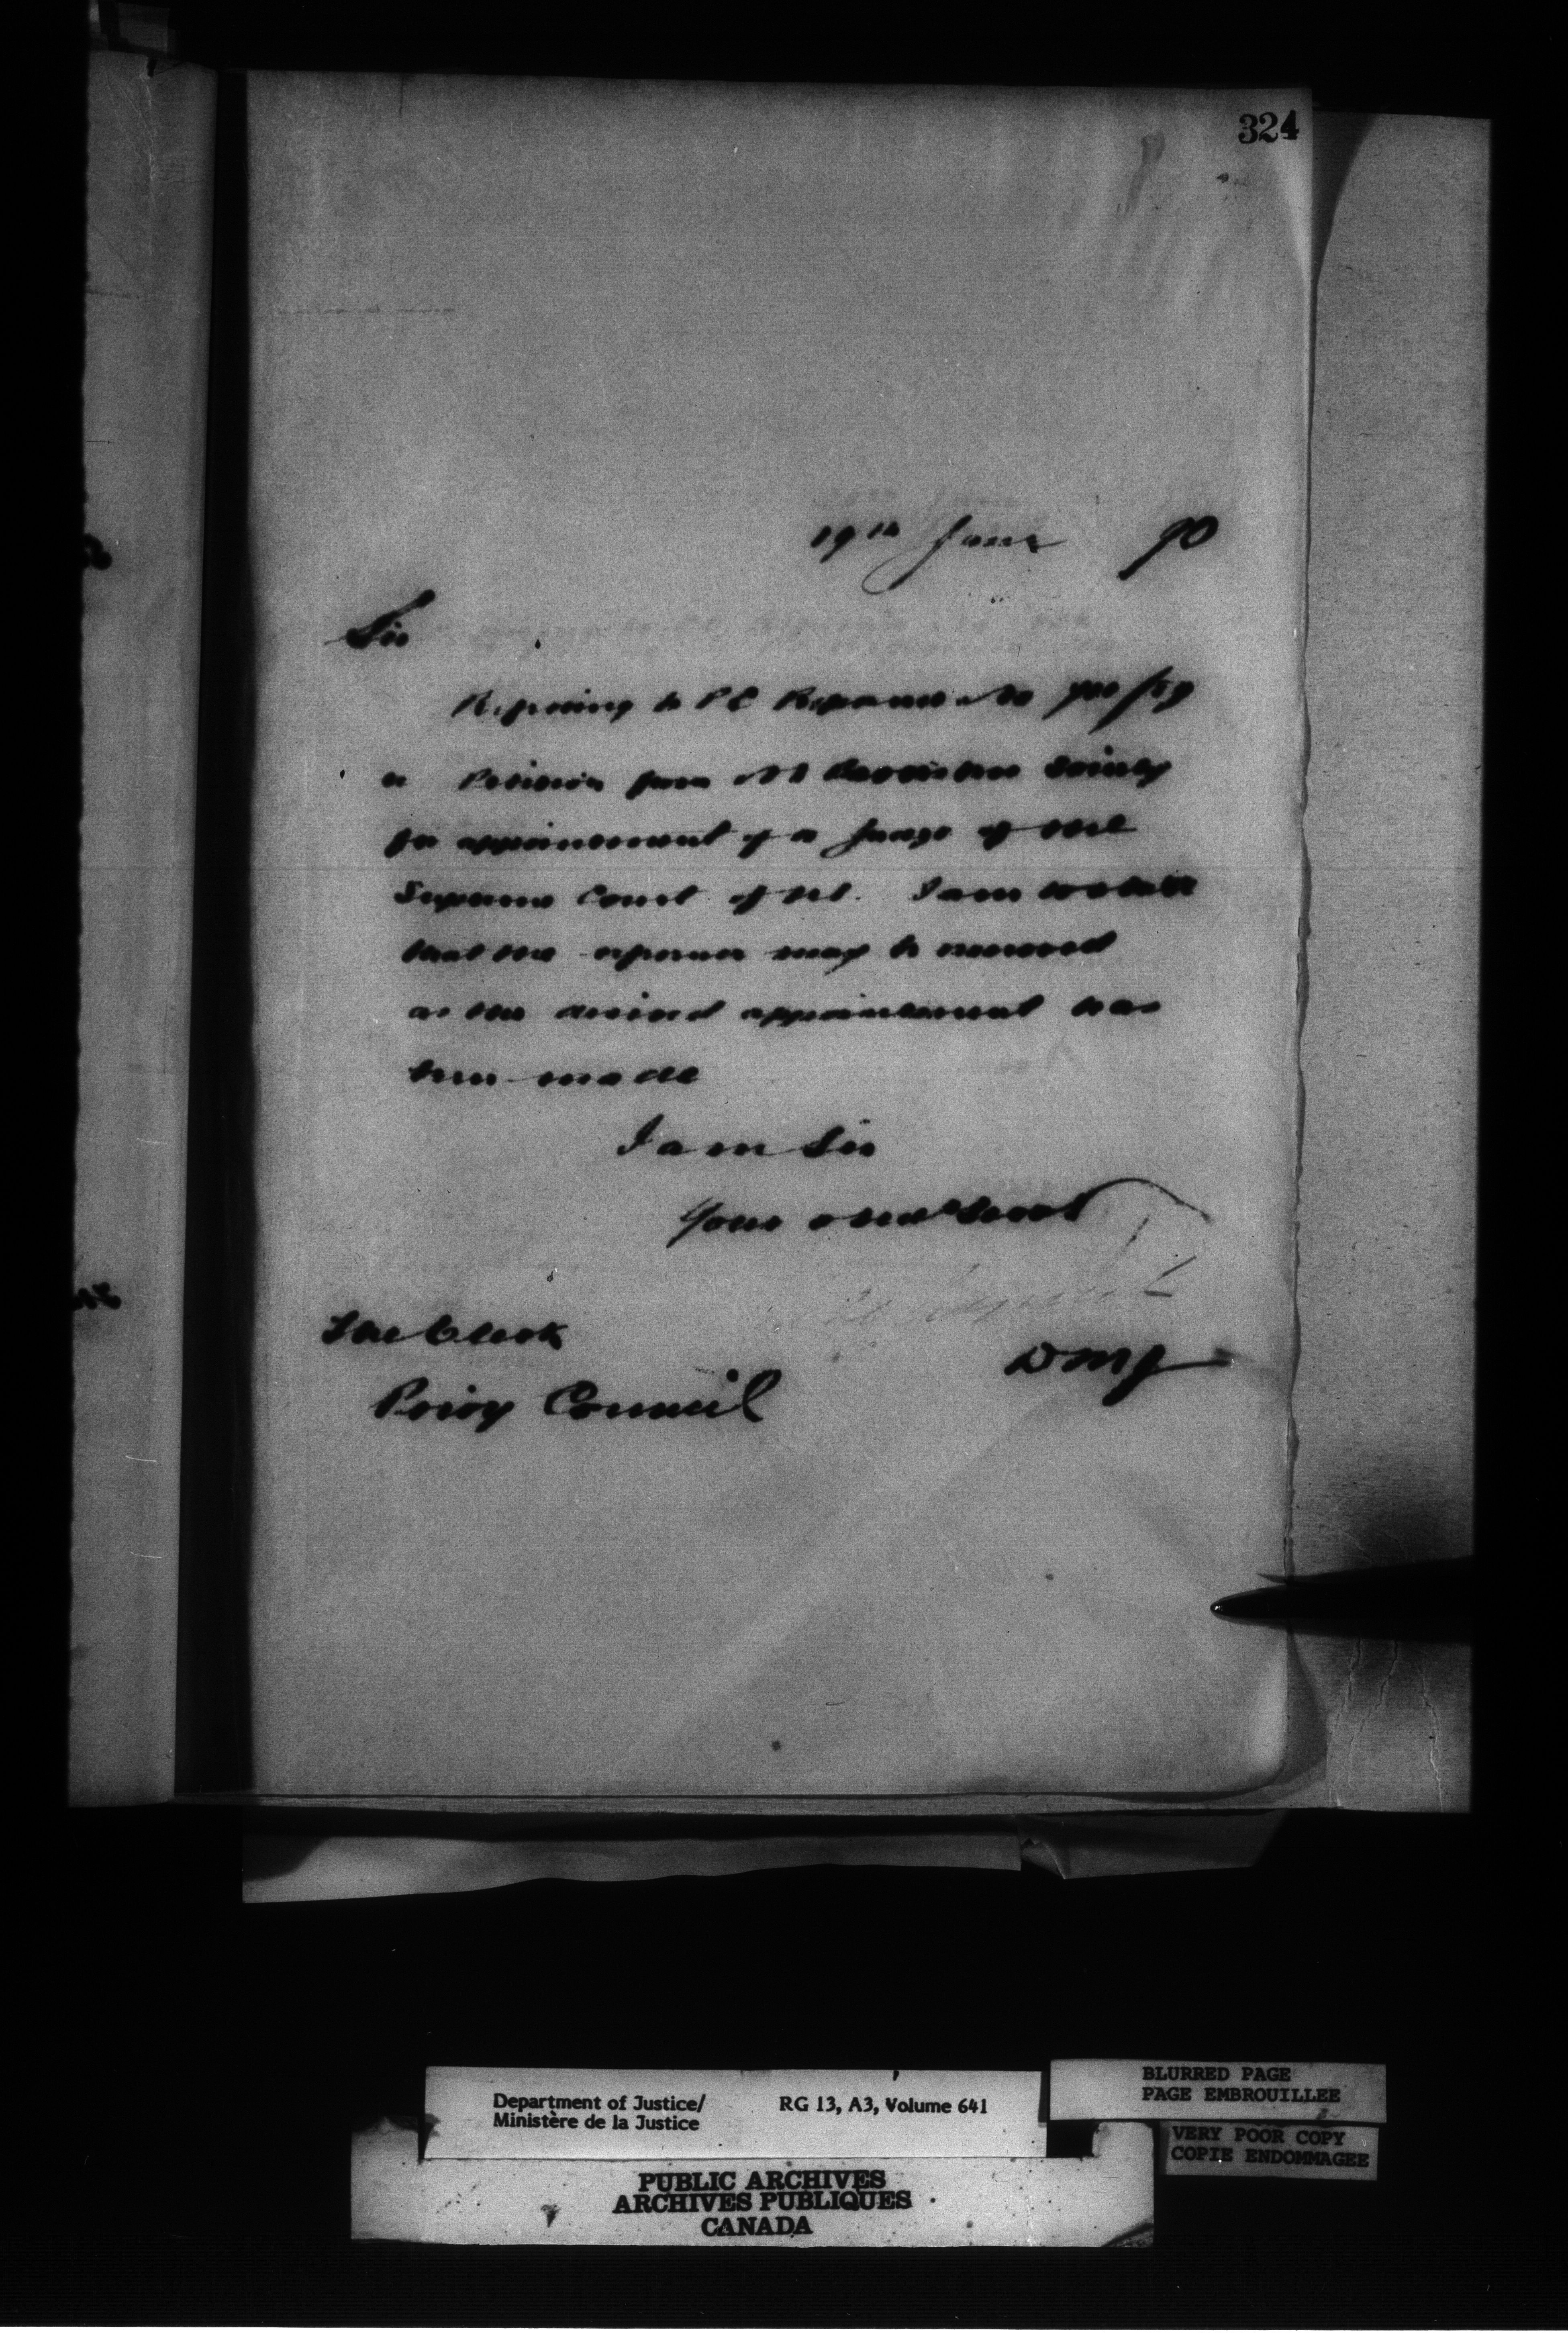 324
19th June 90
Sir
Referring to P C Reference No
a Petition from Barristers Society
for appointment of a Judge of the
Supreme Court of I am to state
that the reference may be removed
as the desired appointment has
been made
I am Sir
Your Obedt Servt
DMJ
The Clerk
Privy Council
Department of Justice/ RG 13, A3, Volume 641
Ministère de la Justice
BLURRED PAGE
PAGE EMBROUILLEE
VERY POOR COPY
COPIE ENDOMMAGEE
PUBLIC ARCHIVES
ARCHIVES PUBLIQUES
CANADA